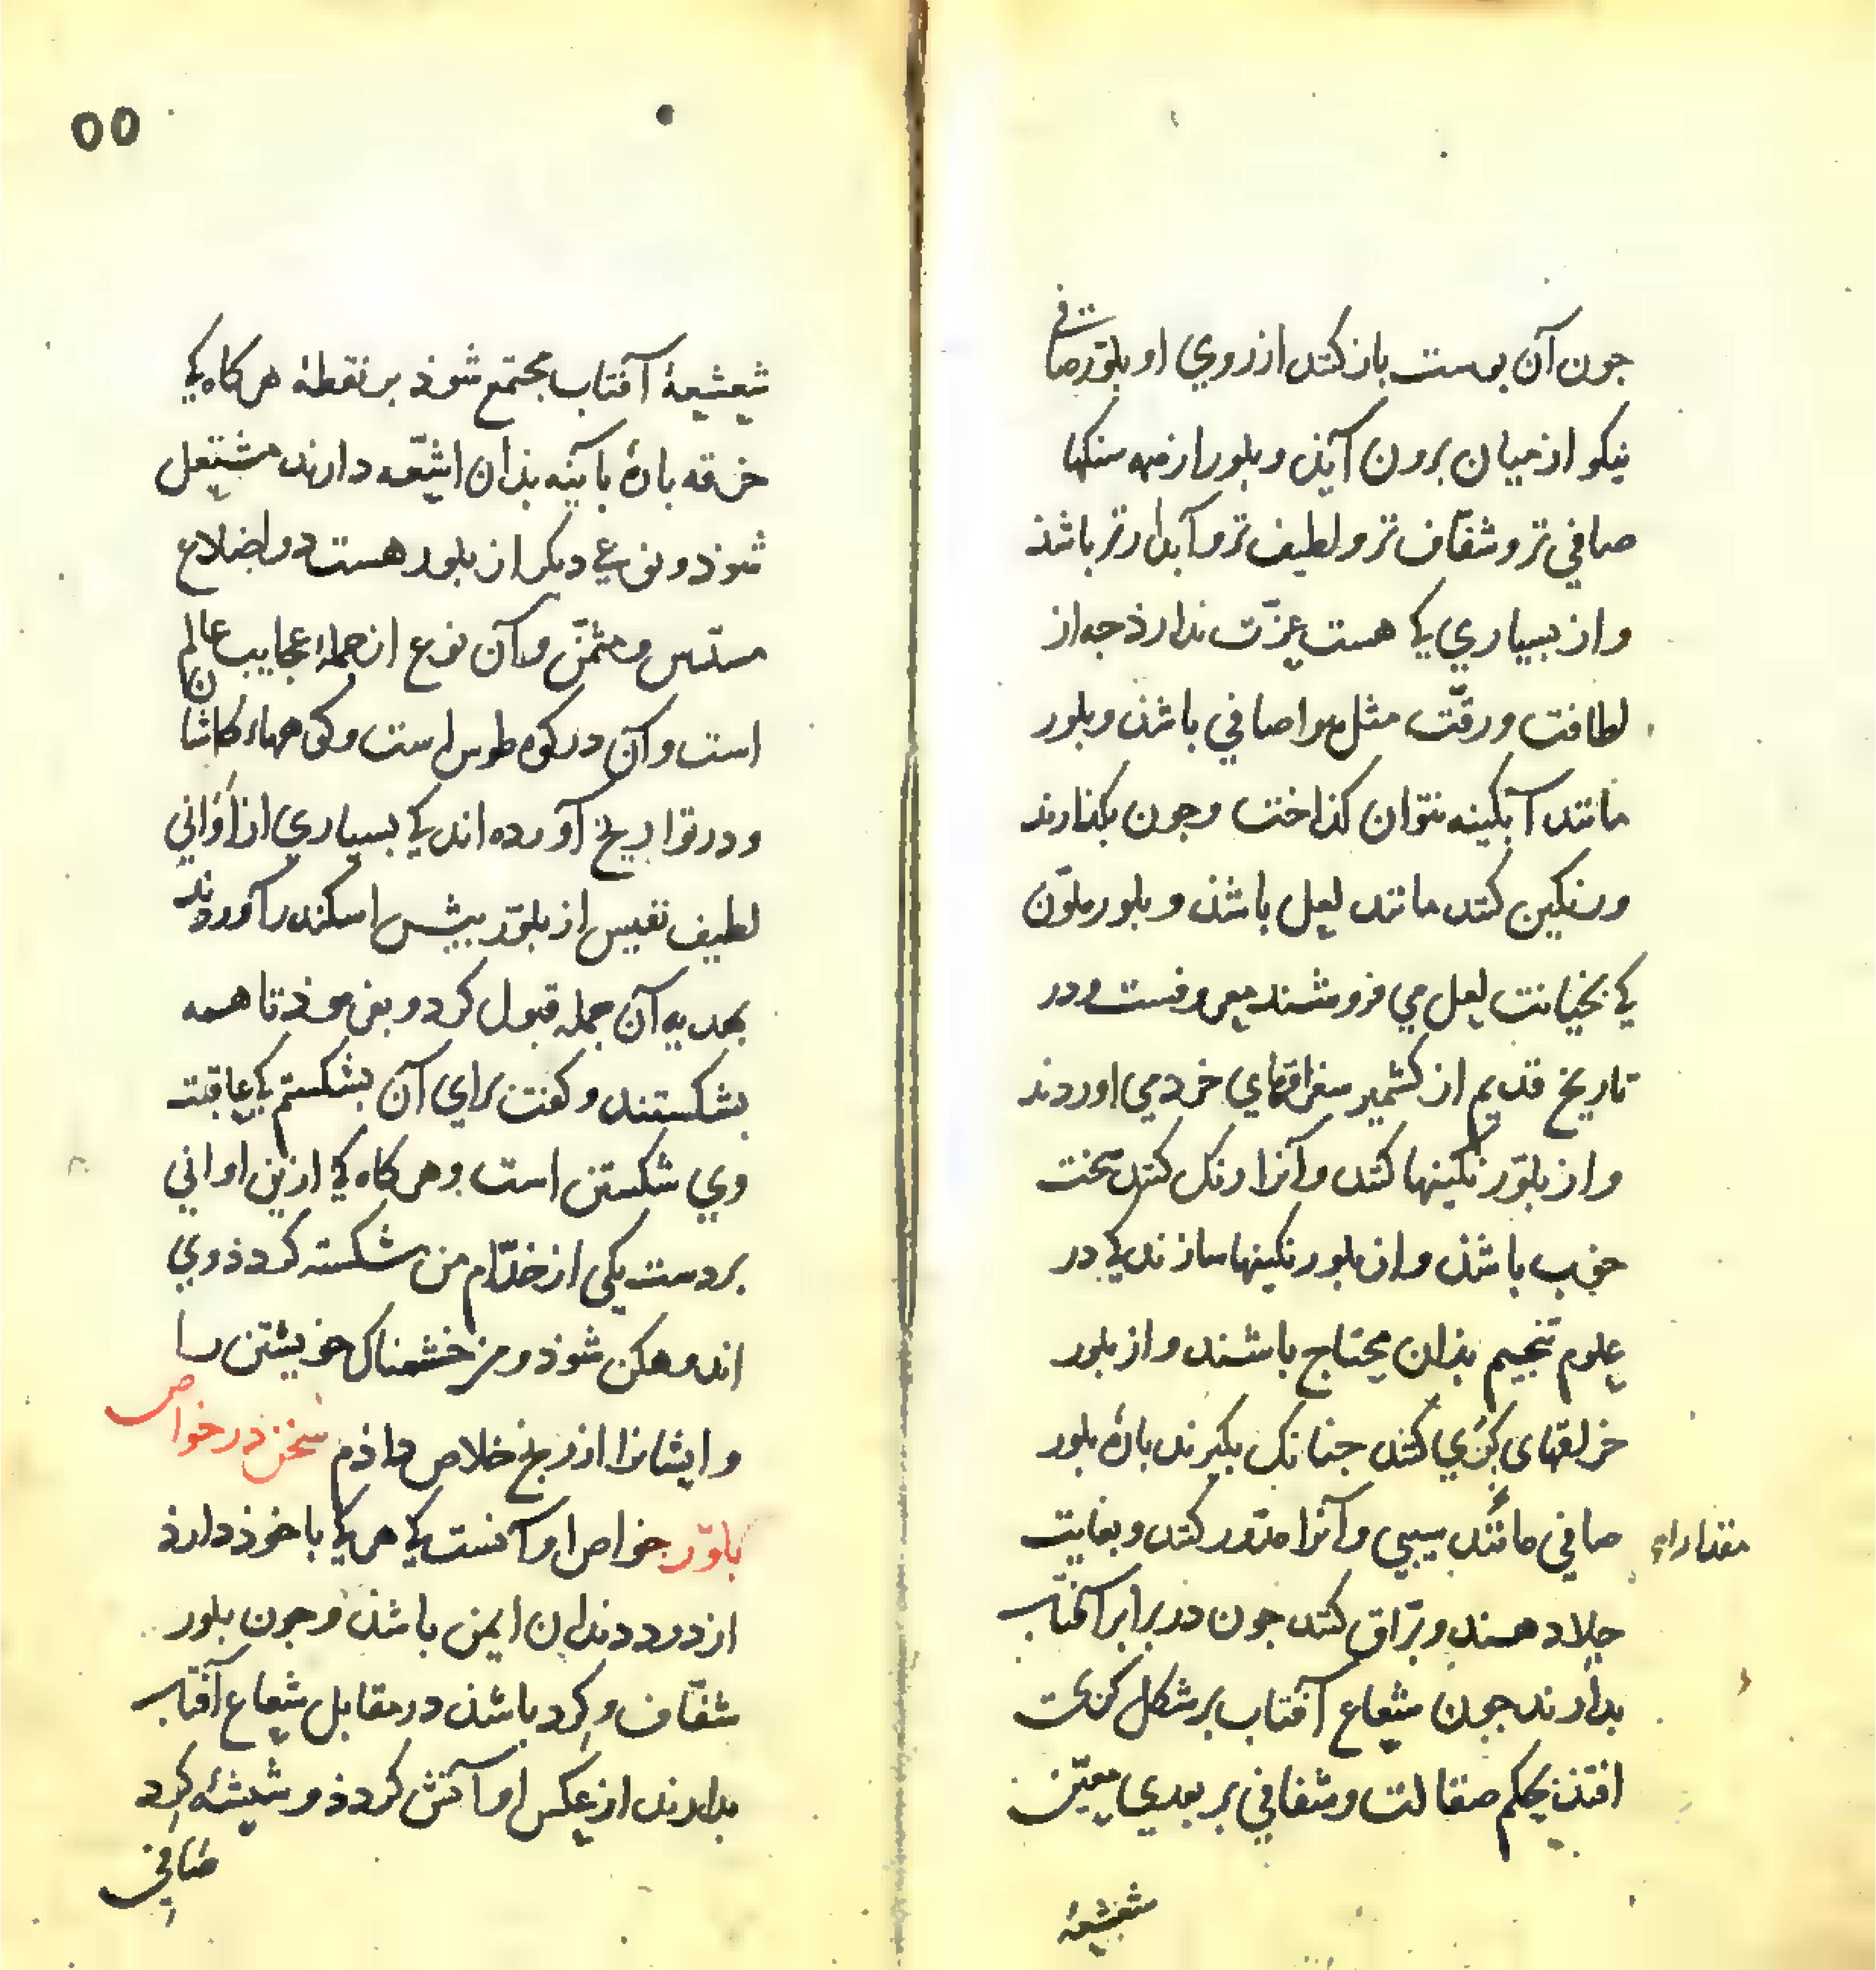 جون آن بوست باز کنند از روي او بلوّر صافی
نیکو از میان برون آیذ و بلور از همه سنکها
صافي تر و شفّاف تر و لطیف تر و آبدارتر باشذ
و از بسیاري کی هست عزّت ندارذ جه از
لطافت و رقّت مثل هوا صافي باشذ و بلور
مانند آبکینه بتوان کذاخت و جون بکذارند
و رنکین کنند مانند لعل باشذ و بلور ملوّن
کی بخیانت لعل مي فروشند معروفست و در
تاریخ قدیم از کشمیر سفراقهاي خرد مي اوردند
و از بلوّر نکینها کنند و آنرا رنک کنند سخت
خوب باشذ و از بلور نکینها سازند کی در
علوم تنجیم بذان محتاج باشند و از بلور
خرلقهای کُرَي کنند جنانک بکیرند بارهٔ بلور
صافي مانند سیبي و آنرا مدّور کنند و بغایت
مقدار او
جلا دهند و برّاق کنند جون در برابر آفتاب
بدارند جون شعاع آفتاب بر شکل کریت
افتذ بحکم صقالت و شفافي بر بعدي معیّن
شعشعهٔ
٥٥
شعشعهٔ آفتاب مجتمع شوذ بر نقطهٔ هر کاه کی
خرقه بارهٔ یا بنبه بذان اشعّه دارند مشتعل
شوذ و نوعي دیکر از بلور هست ذو اضلاع
مسدّس و مثمّن و آن نوع از جملهٔ عجایب عالم
است و آن در کوه طوس است و کوهها کاشان
و در تواریخ آورده اند کی بسیاري از اَوَاني
لطیف نفیس از بلوّر بیش اسکندر آوردند
بهدیه آن جمله قبول کرد و بفرموذ تا همه
بشکستند و کفت براي آن بشکستم کی عاقبت
وي شکستن است و هر کاه کی ازین اواني
بر دست یکی از خدّام من شکسته کردذ وي
اندوهکن شوذ و من خشمناک خویشتن را
و ایشانرا از رنج خلاص داذم سخن در خواص
بلوّر خواص او آنست کی هر کی با خوذ دارذ
از درد دندان ایمن باشذ و جون بلور
شفّاف و کرد باشذ در مقابل شعاع آفتاب
بدارند از عکس او آتش کردذ و شیشهٔ کرد
صافي